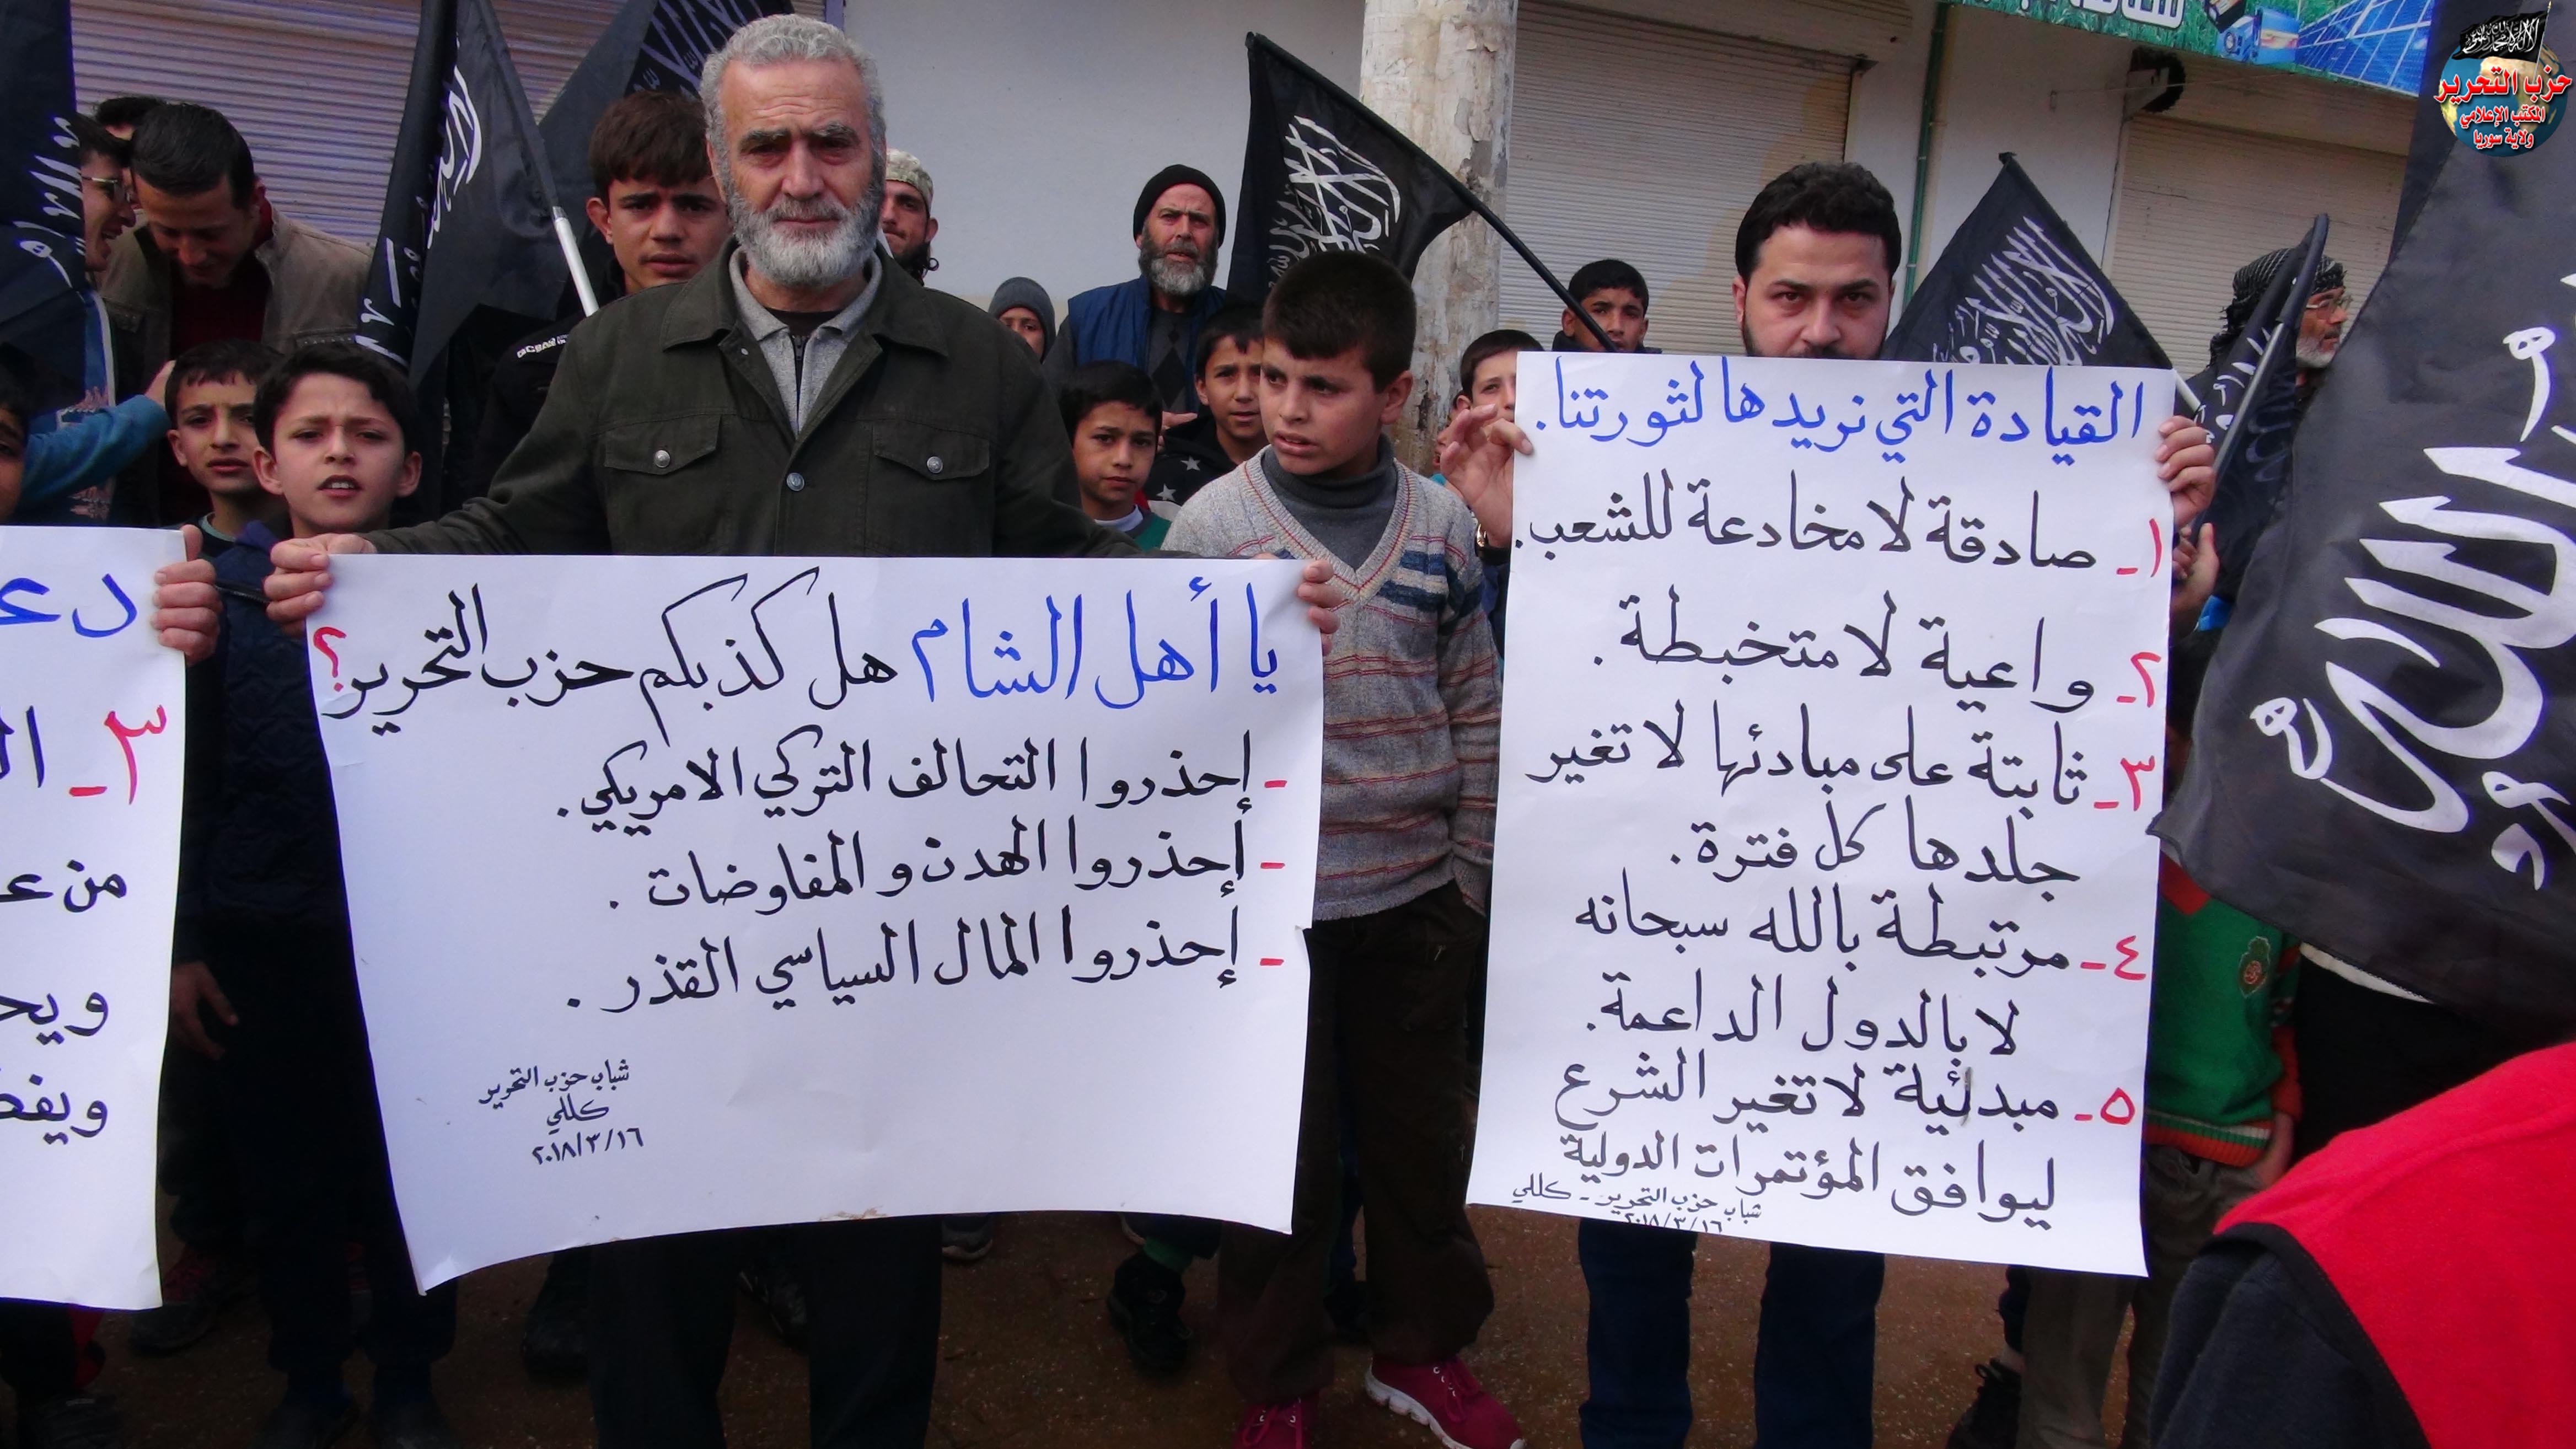 حزب التحرير
المكتب الإعلامي
ولاية سوريا
القيادة التي نريدها لثورتنا.
١- صادقة لا مخادعة للشعب.
٢- واعية لا متخبطة.
٣- ثابتة على مبادئها لا تغير
جلدها كل فترة.
٤- مرتبطة بالله سبحانه
لا بالدول الداعمة.
٥- مبدئية لا تغير الشرع
ليوافق المؤتمرات الدولية
شباب حزب التحرير - كللي
٢٠١٨/٣/١٦
يا أهل الشام هل كذبكم حزب التحرير؟
- إحذروا التحالف التركي الامريكي.
- إحذروا الهدن والمفاوضات.
- إحذروا المال السياسي القذر.
شباب حزب التحرير
كللي
٢٠١٨/٣/١٦
٣-
من